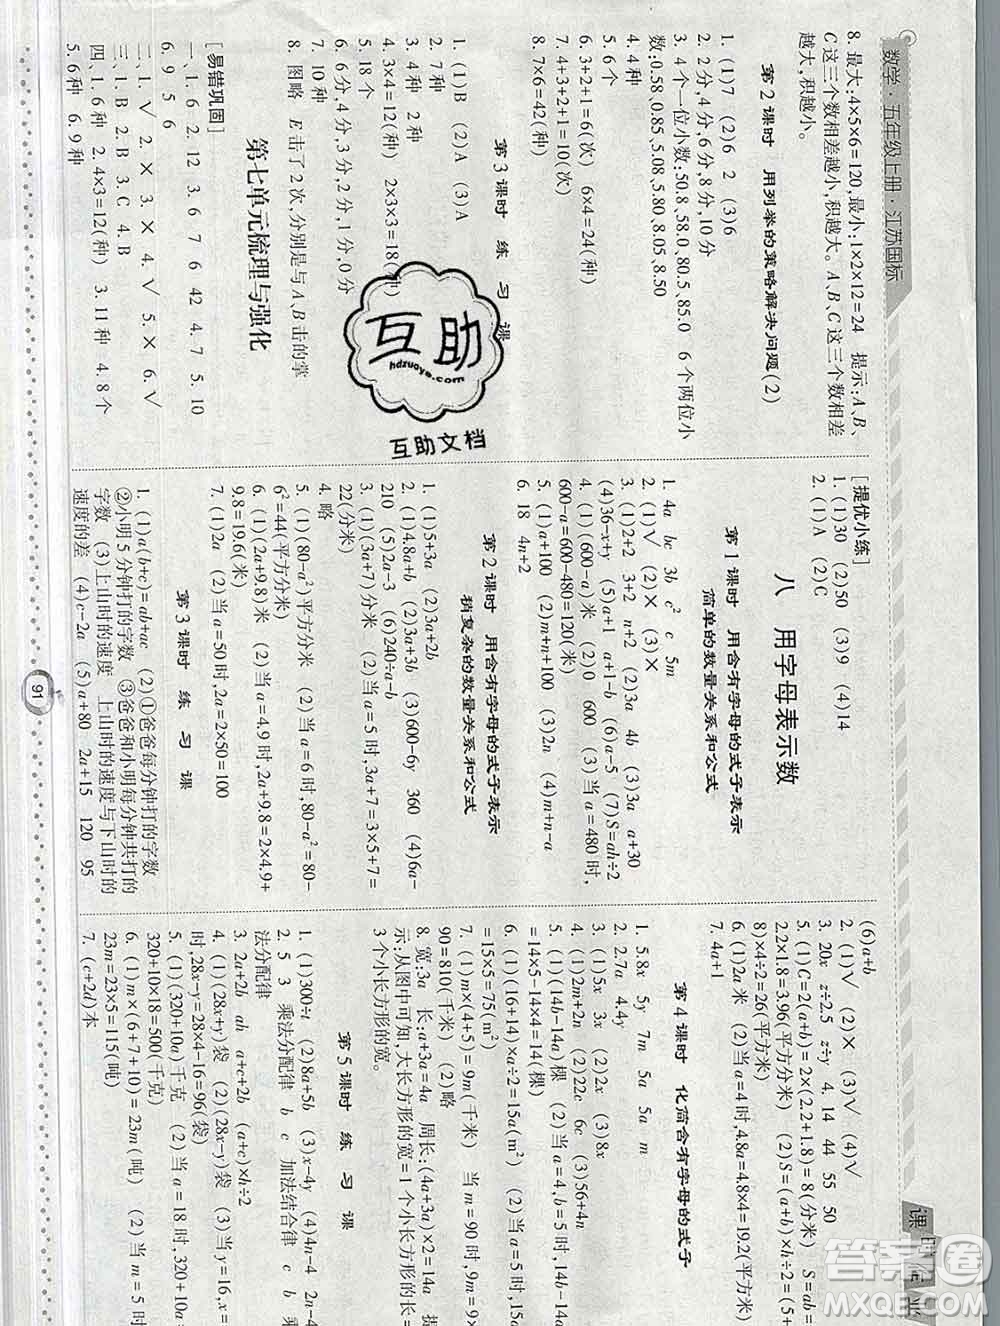 数学·五年级上册·江苏国标
8. 最大:4×5×6=120,最小:1×2×12=24 提示:A、B、
C这三个数相差越小,积越大。A、B、C这三个数相差
越大,积越小。
第2课时 用列举的策略解决问题(2)
1. (1)7 (2)6 2 (3)6
2. 2分,4分,6分,8分,10分
3. 4个一位小数:50.8,58.0,80.5,85.0 6个两位小
数:0.58,0.85,5.08,5.80,8.05,8.50
4. 4种
5. 6个
6. 3+2+1=6(次) 6×4=24(种)
7. 4+3+2+1=10(次)
8. 7×6=42(种)
第3课时 练 习 课
1. (1)B (2)A (3)A
2. 7种
3. 4种 2种
4. 3×4=12(种) 2×3×3=18(种)
5. 18个
6. 6分,4分,3分,2分,1分,0分
7. 10种
8. 图略 E击了2次,分别是与A、B击的掌
第七单元梳理与强化
[易错巩固]
一、1. 6 2. 12 3. 6 7 6 42 4. 7 5. 10
6. 9 5 6
二、1. √ 2. × 3. × 4. √ 5. × 6. √
三、1. B 2. C 3. C 4. B
四、1. 6种 2. 4×3=12(种) 3. 11种 4. 8个
5. 6种 6. 9种
互助
hdzuoye.com
互助文档
[提优小练]
1. (1)30 (2)50 (3)9 (4)14
2. (1)A (2)C
八 用字母表示数
第1课时 用含有字母的式子表示
简单的数量关系和公式
1. 4a bc 3b c² c 5m
2. (1)√ (2)× (3)×
3. (1)2+2 3+2 n+2 (2)3a 4b (3)a+30
(4)36-x+y (5)a+1 a+1-b (6)a-5 (7)S=ah÷2
4. (1)(600-a)米 (2)0 600 (3)当a=480时,
600-a=600-480=120(米)
5. (1)a+n (2)m+n+a (3)2n (4)m+n-a
6. 18 4n+2
第2课时 用含有字母的式子表示
稍复杂的数量关系和公式
1. (1)5+3a (2)2a+2b
2. (1)4.8a+b (2)3a+3b (3)600-6y 360 (4)6a-
210 (5)2a-3 (6)240÷a-b
3. (1)(3a+7)分米 (2)当a=5时,3a+7=3×5+7=
22(分米)
4. 略
5. (1)(80-a²)平方分米 (2)当a=6时,80-a²=80-
6²=44(平方分米)
6. (1)(2a+9.8)米 (2)当a=4.9时,2a+9.8=2×4.9+
9.8=19.6(米)
7. (1)2a (2)当a=50时,2a=2×50=100
第3课时 练 习 课
1. (1)a(b+c)=ab+ac (2)①爸爸每分钟打的字数
②小明5分钟打的字数 ③爸爸和小明每分钟共打的
字数 (3)上山时的速度 上山时的速度与下山时的
速度的差 (4)c-2a (5)a+80 2a+15 120 95
(6)a+b
2. (1)√ (2)× (3)√ (4)√
3. 20x z÷2.5 z÷y 4. 14 44 55 50
5. (1)C=2(a+b)=2×(2.2+1.8)=8(分米) S=ab=
2.2×1.8=3.96(平方分米) (2)S=(a+b)×h÷2=(5+
8)×4÷2=26(平方米)
6. (1)2a米 (2)当a=4.8时,4a=4.8×4=19.2(平方米)
7. 4a+1
第4课时 化简含有字母的式子
1. 5.8x 5y 7m 5a 5a m
2. 2.7a 4.4y
3. (1)5x 3x (2)2x (3)8x
4. (1)2m+2n (2)22c 6c (3)56+4n
5. (1)(14b-14a)棵 (2)当a=4,b=5时,14b-14a
=14×5-14×4=14(棵)
6. (1)(16+14)×a÷2=15a(m²) (2)当a=5时,15a
=15×5=75(m²)
7. (1)m×(4+5)=9m(千米) 当m=90时,9m=9×
90=810(千米) (2)略
8. 宽:3a 长:a+3a=4a 周长:(4a+3a)×2=14a 提
示:从图中可知,大长方形的宽=1个小长方形的长=
3个小长方形的宽。
第5课时 练 习 课
1. (1)300÷t (2)8a+5b (3)x-4y (4)4n-4 2n
2. 5 3 乘法分配律 b c 加法结合律 c 乘
法分配律
3. 2a+2b ah a+c+2b (a+c)×h÷2
4. (1)(28x+y)袋 (2)(28x-y)袋 (3)当x=4,y=16
时,28x-y=28×4-16=96(袋)
5. (1)(320+10a)千克 (2)当a=18时,320+10a=
320+10×18=500(千克)
6. (1)m×(6+7+10)=23m(吨) (2)当m=5时,
23m=23×5=115(吨)
7. (c+2d)本
91
答案圈
MXQE.COM